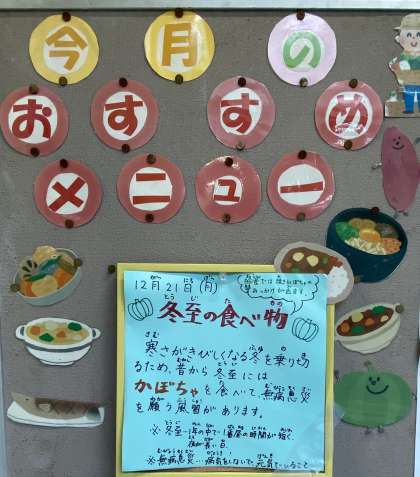 今月の
おすすめ
メニュー
12月21日(月)
冬至の食べ物
寒さがきびしくなる冬を乗り切
るため、昔から冬至には
かぼちゃを食べて、無病息災
を願う風習があります。
※冬至…1年の中で1番昼の時間が短く、
夜が長い日。
※無病息災…病気をしないで、元気でいること